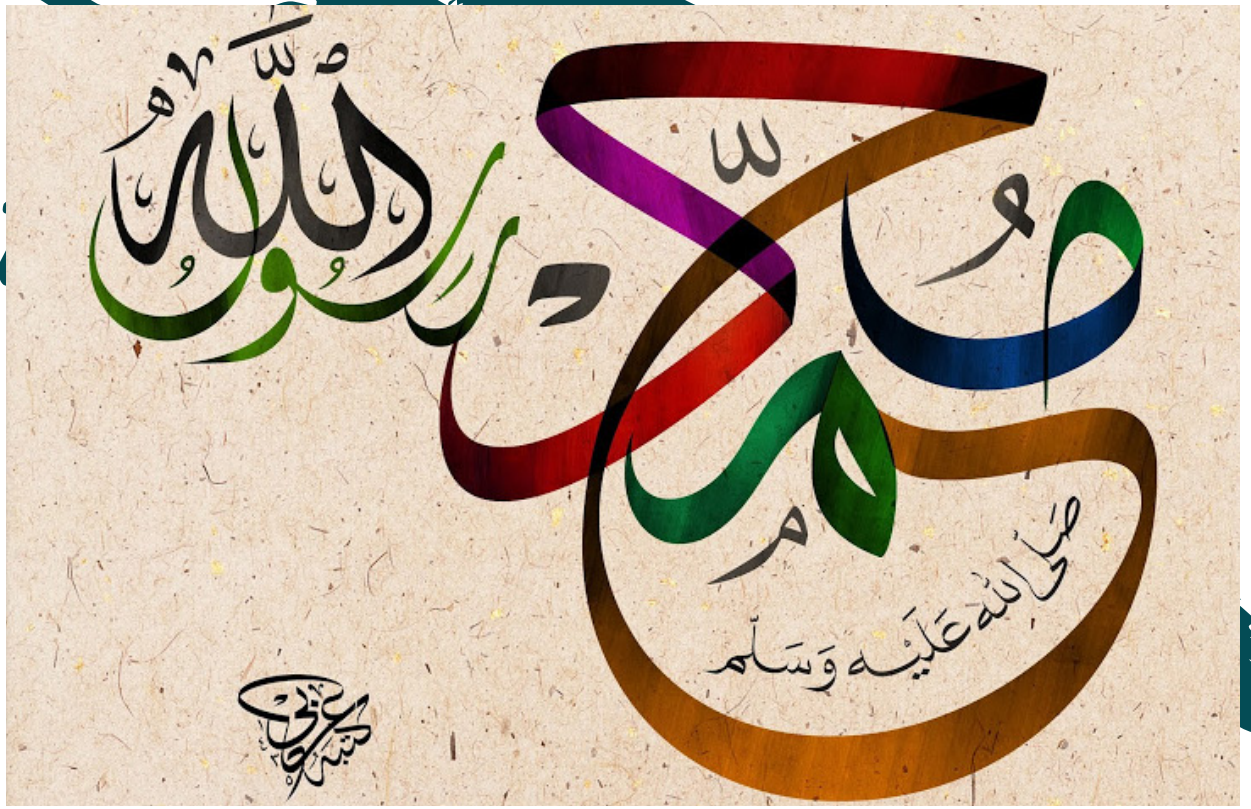 مُحَمَّد
رسول الله
صَلّى الله عَلَيْه وَسَلّم